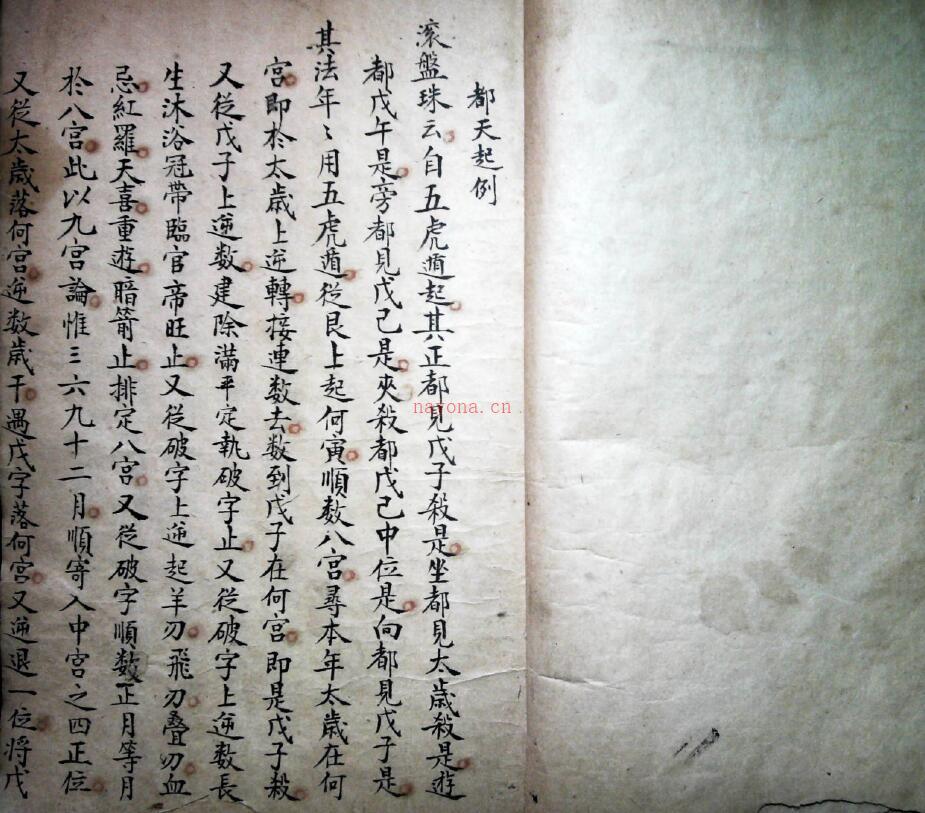 都天起例
滾盤珠云自五虎遁起其正都見戊子殺是坐都見太歲殺是遊
都戊午是旁都見戊己是夾殺都戊己中位是向都見戊子是
其法年〻用五虎遁從艮上起何寅順数八宮尋本年太歲在何
宮即於太歲上逆轉接連数去数到戊子在何宮即是戊子殺
又從戊子上逆数建除滿平定執破字止又從破字上逆数長
生沐浴冠帶臨官帝旺止又從破字上逆起羊刃飛刃叠刃血
忌紅羅天喜重遊暗箭止排定八宮又從破字順数正月等月
於八宮此以九宮論惟三六九十二月順寄入中宮之四正位
又從太歲落何宮逆数歲干遇戊字落何宮又逆退一位將戊
nayona.cn